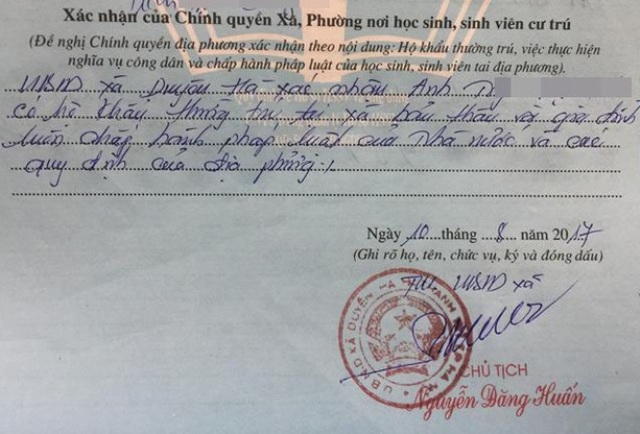 Xác nhận của Chính quyền Xã, Phường nơi học sinh, sinh viên cư trú
(Đề nghị Chính quyền địa phương xác nhận theo nội dung: Hộ khẩu thường trú, việc thực hiện
nghĩa vụ công dân và chấp hành pháp luật của học sinh, sinh viên tại địa phương).
UBND xã Duyên Hà xác nhận Anh
có hộ khẩu thường trú tại xã bản thân và gia đình
luôn chấp hành pháp luật của nhà nước và các
quy định của địa phương./.
Ngày 10 tháng 8 năm 2017
(Ghi rõ họ, tên, chức vụ, ký và đóng dấu)
TM UBND xã
CHỦ TỊCH
Nguyễn Đăng Huấn